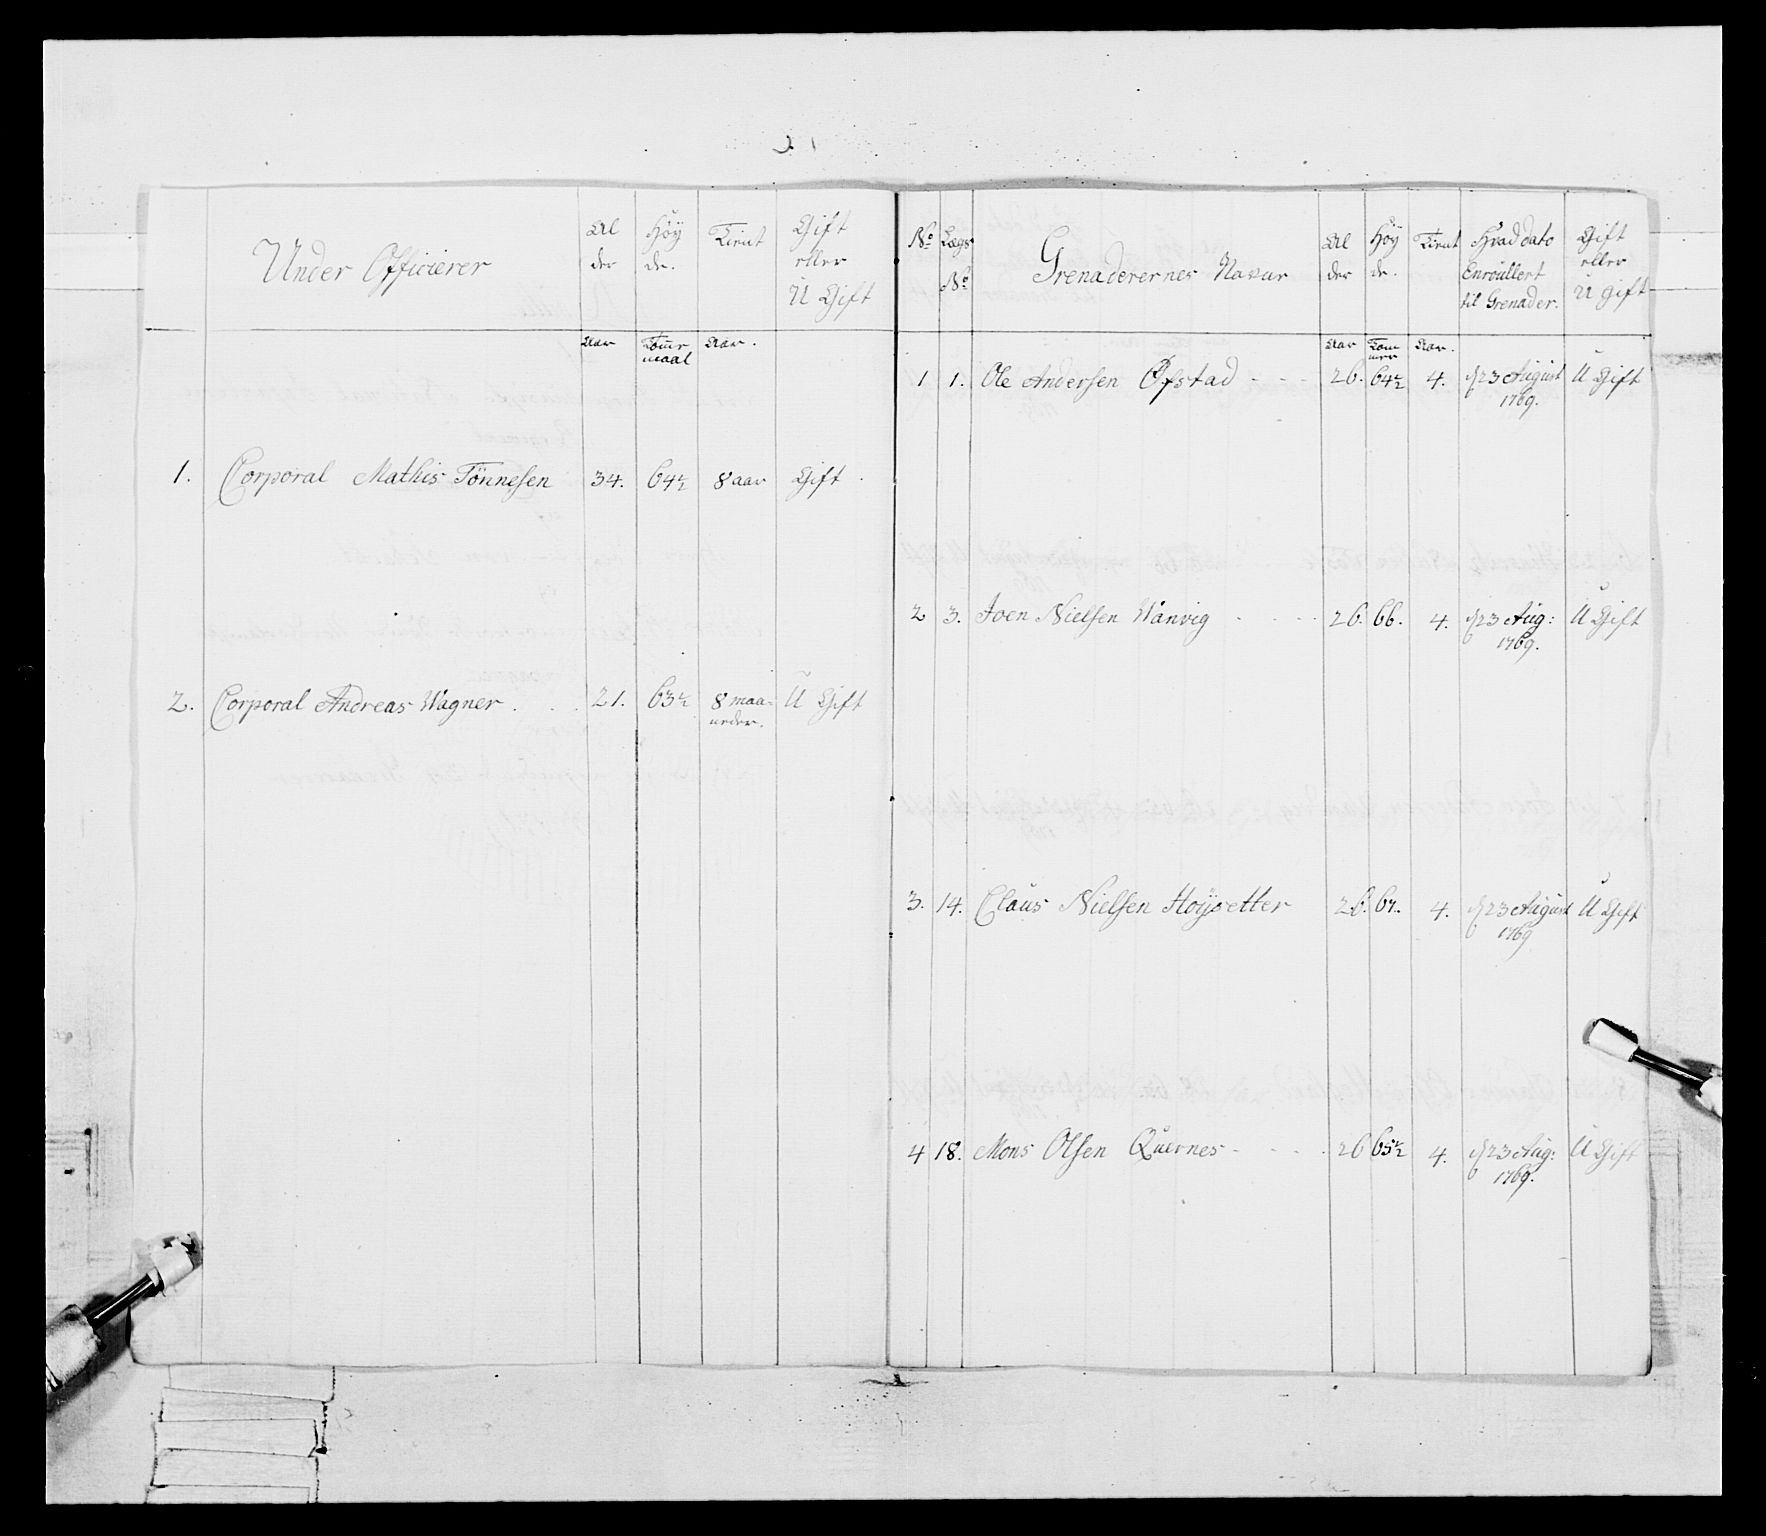 Under Officierer | Al der | Höÿ de. | Tient | Gift eller U Gift
Aar | Tomr maal | Aar.
1. | Corporal Mathis Tönnesen | 34. | 64½ | 8 aar | Gift
2. | Corporal Andreas Wagner . . . | 21. | 63½ | 8 maa-neder. | U Gift
No | Lægs No | Grenaderernes Navne | Al der | Höÿ de. | Tient | Hvad dato Enroullert til Grenader. | Gift eller U gift
Aar | Tom mer | Aar.
1 | 1. | Ole Andersen Øfstad - - - | 26. | 64½ | 4. | d 23 August 1769. | U Gift
2 | 3. | Joen Nielsen Wanvig - - - - | 26. | 66. | 4. | d 23 Aug: 1769. | U Gift
3. | 14. | Claus Nielsen Hoÿsetter | 26. | 67. | 4. | d 23 August 1769 | U Gift
4 | 18. | Mons Olsen Quernes - - - - | 26 | 65½ | 4. | d 23 Aug: 1769. | U Gift